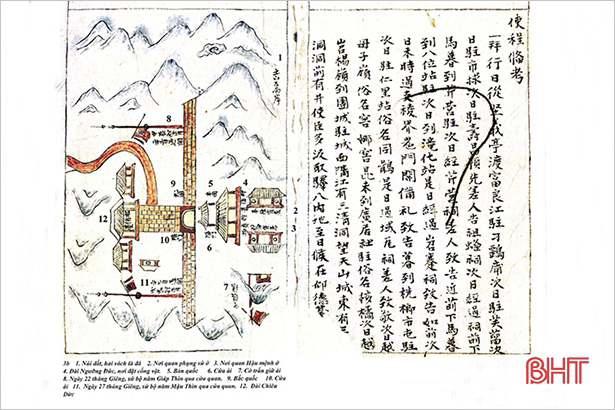 使程備考
一拜行日從 亭渡富良江駐刁鶴庯次日駐芙 次
日駐市球次日駐壽昌 先差人告祖 祠次日經過祠前下
馬暮到芹營駐次日經芹营祠差人致告近前下馬暮
到八位站駐次日到 化站是日經過岩蹇祠致告如前次
日未時過支稜界鬼門關備礼致告暮到桄榔市屯駐
次日駐仁里站俗名同鵝是日過 鹿祠差人致敬次日越
母子嶺俗名窖娜窖 未到廣居社駐俗名板橘次日越
楊嶺到團城駐城西隅江有三清洞望天山城東有三
洞洞前有井使臣多汲取 入内地至日候在 德臺
1
8
9
5
4
2
12
10
6
3
11
7
3b 1. Núi đất, hai vách là đá 2. Nơi quan phụng sứ ở 3. Nơi quan Hậu mệnh ở
4. Đài Ngưỡng Đức, nơi đặt cống vật. 5. Bản quốc 6. Cửa ải 7. Cờ trấn giữ ải
8. Ngày 22 tháng Giêng, sứ bộ năm Giáp Thìn qua cửa quan. 9. Bắc quốc 10. Cửa
ải 11. Ngày 27 tháng Giêng, sứ bộ năm Mậu Thìn qua cửa quan. 12. Đài Chiêu
Đức
BHT